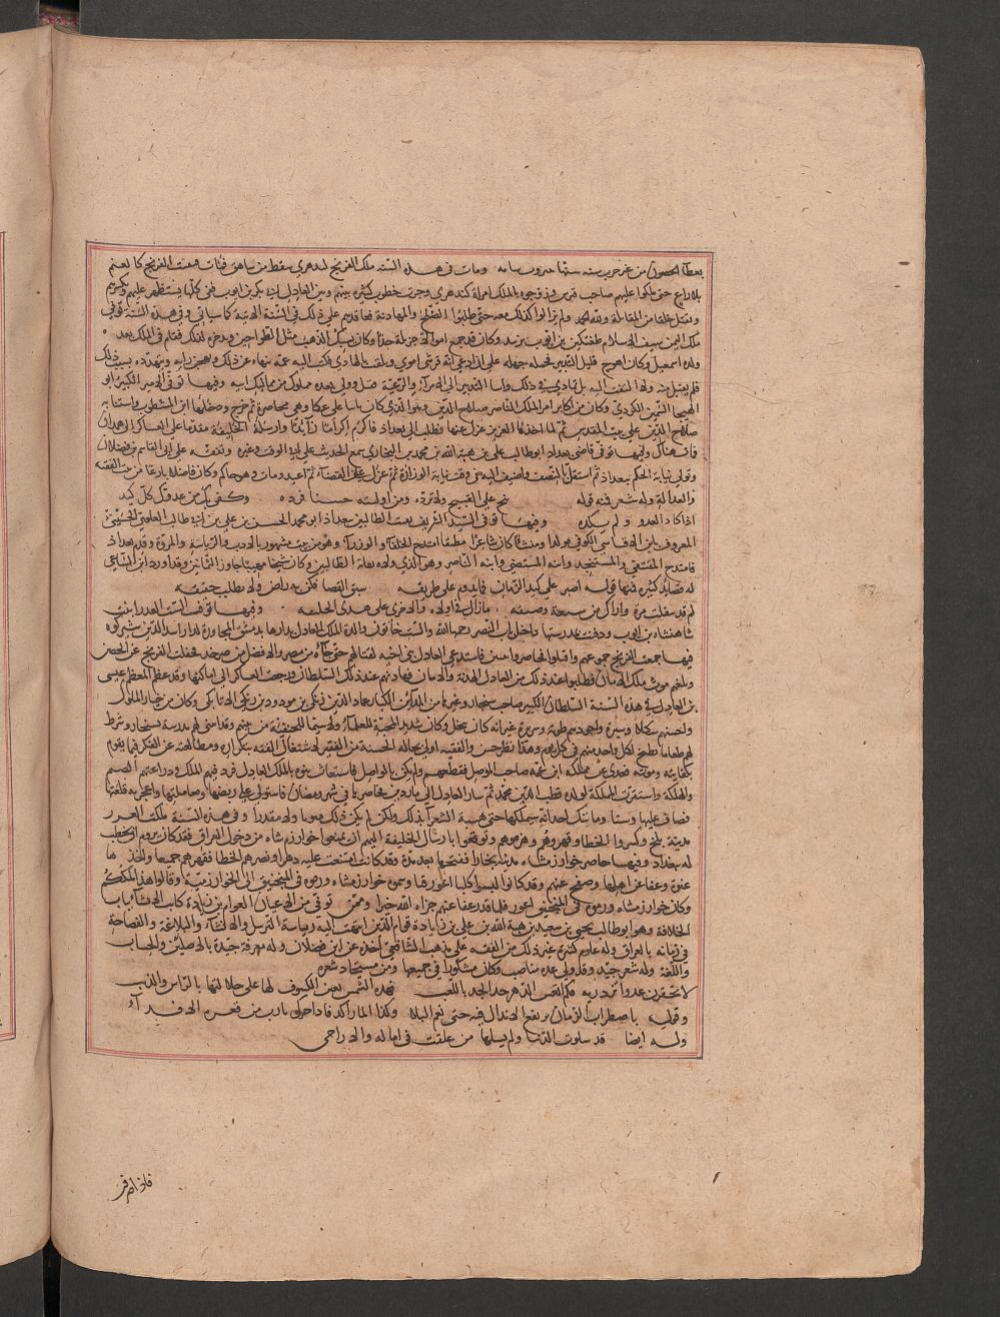 ومات فى هذه السنة ملك الفرنج كندهرى سقط من شاهق فمات وبقيت الفرنج كالغنم
بلا راع حتى ملكوا عليهم صاحب قبرس وزوجوه بالملكة امراة كندهرى وجرت خطوب كثيرة بينهم وبين العادل ابى بكر بن ايوب ففى كلها يستظهر عليهم ويكسرهم
ويقتل خلقا من المقاتلة ولله الحمد ولم يزالوا كذلك معه حتى طلبوا الصلح والمهادنة فعاقدهم على ذلك فى السنة الاتية كما سياتى وفى هذه السنة توفى
ملك اليمن سيف الاسلام طغتكين بن ايوب بزبيد وكان قد جمع اموالا جزيلة جدا وكان يسبك الذهب مثل الطواحين ويدخره كذلك فقام فى الملك بعده
ولده اسمعيل وكان اهوج قليل التدبير فحمله جهله على ان ادعى انه قرشى اموى وتلقب بالهادى فكتب اليه عمه ينهاه عن ذلك ويتهدده بسبب ذلك
فلم يقبل منه ولا التفت اليه بل تمادى فى ذلك واساء التدبير الى الامراء والرعية فقتل وولى بعده مملوك من مماليك ابيه وفيها توفى الامير الكبير ابو
الهيجا السمين الكردى وكان من اكابر امراء الملك الناصر صلاح الدين وهو الذى كان نائبا على عكا وهى محاصرة ثم خرج ودخلها ابن المشطوب واستنابه
صلاح الدين على بيت المقدس ثم لما اخذها العزيز عزل عنها فطلب الى بغداد فاكرم اكراما زائدا وارسله الخليفة مقدما على العساكر الى همدان
فمات هناك وفيها توفى قاضى بغداد ابو طالب على بن على بن هبة الله بن محمد بن البخارى سمع الحديث على ابى الوقت وغيره وتفقه على ابى القاسم بن فضلان
وتولى نيابة الحكم ببغداد ثم استقل بالمنصف واضيف اليه فى وقت نيابة الوزارة ثم عزل عن القضاء ثم اعيد ومات وهو حاكم وكان فاضلا بارعا من بيت الفقه
والعدالة وله شعر فمنه قوله تنح على القبيح ولا ترده ومن اوليته حسنا فزده وكفى بك من عدوك كل كيد
اذا كاد العدو ولم يكده وفيها توفى السيد الشريف نقيب الطالبين ببغداد ابو محمد الحسن بن على بن ابى طالب العلوى الحسينى
المعروف بابن الاقساسى الكوفى مولدا ومنشاء كان شاعرا مطبقا امتدح الخلفاء والوزراء وهو من بيت مشهور بالادب والرياسة والمروة وقدم بغداد
فامتدح المقتفى والمستنجد وابنه المستضى وابنه الناصر وهو الذى ولاه نقابة الطالبيين وكان شيخا مهيبا جاوز الثمانين وقد اورد ابن الساعى
له قصائد كثيرة منها قوله اصبر على كيد الزمان فما يدوم على طريقه سبق القضا فكن به راض ولا تطلب حقيقته
كم قد تغلب مرة واراك من سعة وضيقه ما زال فى اولاده والاخرى على هذى الخليقه وفيها توفيت الست العذرا بنت
شاهنشاه بن ايوب ودفنت بمدرستها داخل باب النصر رحمها الله والست خاتون والدة الملك العادل بدارها بدمشق المجاورة لدار اسد الدين شيركوه
فيها جمعت الفرنج جموعهم واقبلوا فحاصروا تبنين فاستدعى العادل بنى اخيه لقتالهم حتى جاءه من مصر والافضل من صرخد فحفلت الفرنج عن الحصن
وبلغهم موت ملك الالمان فطلبوا عند ذلك من العادل الهدنة والامان فهادنهم عند ذلك السلطان ورجعت العساكر الى اماكنها وقد عظم المعظم عيسى
بن العادل فى هذه السنة السلطان الكبير صاحب سنجار وغيرها من المدائن الكبار عماد الدين زنكى بن مودود بن زنكى الاتابكى وكان من خيار الملوك
واحسنهم شكلا وسيرة واجودهم طوية وسريرة غير انه كان يبخل وكان شديد المحبة للعلماء ولا سيما للحنفية من بينهم وقد اسس لهم مدرسة بسنجار وشرط
لهم طعاما يطبخ لكل واحد منهم فى كل يوم وهذا نظر حسن والفقيه اولى بهذه الحسنة من الفقير لاشتغال الفقيه بتكراره ومطالعته عن الفكر فيما يقوم
بكفايته ومونته فعدى على مملكته ابن عمه صاحب الموصل فقطعهم فاستغاث بنوه بالملك العادل فرد فيهم الملك ودرا عنهم الضيم
والهلكة واستقرت المملكة لولده قطب الدين محمد ثم سار العادل الى ماردين فحاصرها فى شهر رمضان فاستولى على ربضها ومعاملتها واعجزته قلعتها
فصاف عليها وشتا وما شك احد انه سيملكها حتى هنته الشعراء بذلك ولكن لم يكن ذلك مبينا ولا مقدرا وفى هذه السنة ملكت الغز
مدينة بلخ وكسروا الخطا وقهروهم وهزموهم وتوقعوا بارسال الخليفة اليهم ان يمنعوا خوارزمشاه من دخول العراق فقد كان يروم ان يخطب
له ببغداد وفيها حاصر خوارزمشاه مدينة بخارا ففتحها بعد مدة وقد كانت امتنعت عليه دهرا ونصرهم الخطا فقهرهم جميعا واخذها
عنوة وعفا عن اهلها وصفح عنهم وقد كانوا البسوا كلبا اعور قبا وسموه خوارزمشاه ورموه فى المنجنيق الى الخوارزمية وقالوا هذا ملككم
وكان خوارزمشاه اعور فلما قدر عفا عنهم جزاه الله خيرا وممن توفى من الاعيان العوام بن زيادة كاتب الانشا بباب
الخلافة وهو ابو طالب يحيى بن سعيد بن هبة الله بن على بن زيادة قوام الدين انتهت اليه رياسة الترسل والانشاء والبلاغة والفصاحة
فى زمانه بالعراق وله علوم كثيرة غير ذلك من الفقه على مذهب الشافعى اخذه عن ابن فضلان وله معرفة جيدة بالاصلين والحساب
واللغة وله شعر جيد وقد ولى عدة مناصب وكان مشكورا فى جميعها ومن مستجاد شعره
لا تحقرن عدوا تزدريه فكم اتعس الدهر جد الجد باللعب فهذه الشمس يعرض الكسوف لها على جلالتها بالراس والذنب
وقوله باضطراب الزمان يرتفع الانذال فيه حتى يعم البلاء وكذا الماء راكدا فاذا حرك ثارت من قعره الاقذاء
وله ايضا قد سلوت الدنيا ولم يسلها من علقت فى اماله والاراجى
فاذا صرفت